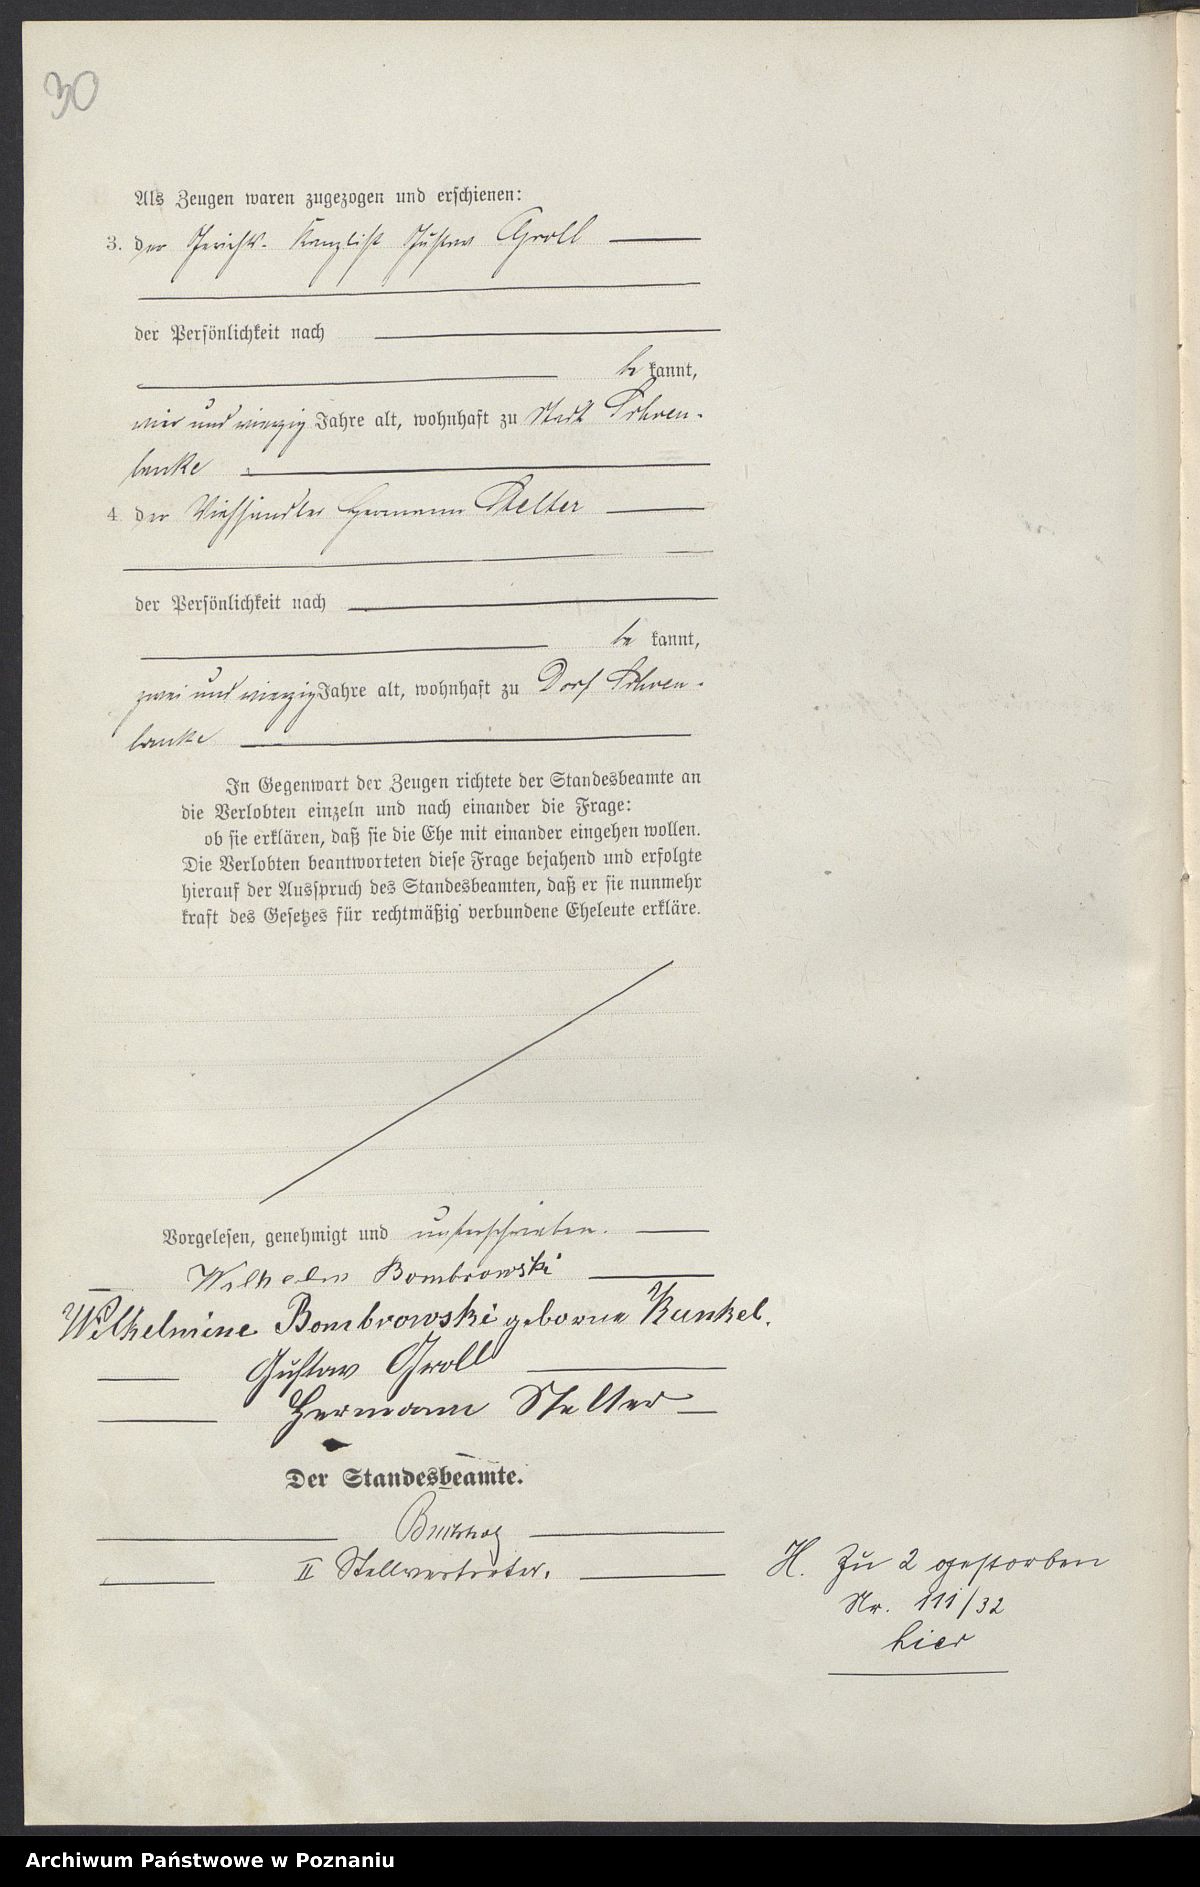 30
Als Zeugen waren zugezogen und erschienen:
3. der Gerichts-Kanzlist Gustav Groll
der Persönlichkeit nach
be kannt,
vier und vierzig Jahre alt, wohnhaft zu Stadt Schoen-
lanke
4. der Viehhändler Hermann Stelter
der Persönlichkeit nach
be kannt,
zwei und vierzig Jahre alt, wohnhaft zu Dorf Schoen-
lanke
In Gegenwart der Zeugen richtete der Standesbeamte an
die Verlobten einzeln und nach einander die Frage:
ob sie erklären, daß sie die Ehe mit einander eingehen wollen.
Die Verlobten beantworteten diese Frage bejahend und erfolgte
hierauf der Ausspruch des Standesbeamten, daß er sie nunmehr
kraft des Gesetzes für rechtmäßig verbundene Eheleute erkläre.
Vorgelesen, genehmigt und unterschrieben.
Wilhelm Bombrowski
Wilhelmine Bombrowski geborne Kunkel.
Gustav Groll
Hermann Stelter
Der Standesbeamte.
II Stellvertreter.
H. Zu 2 gestorben
Nr. 111/32
hier
Archiwum Państwowe w Poznaniu